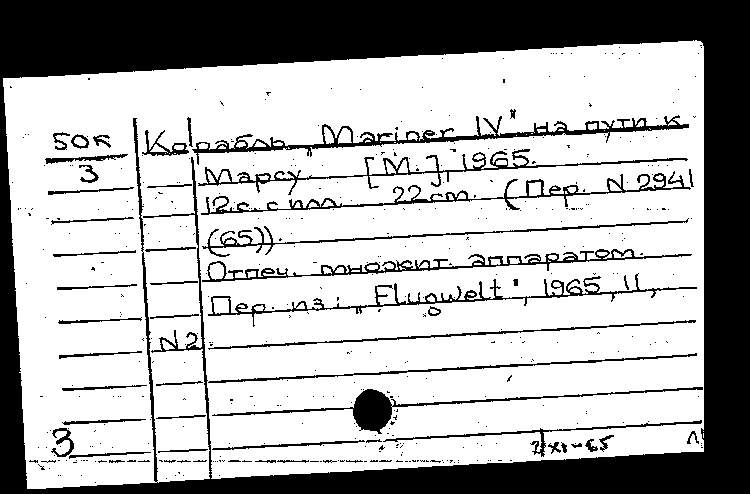 50к Корабль „Mariner IV" на пути к
3 Марсу. [М.], 1965.
12.с. с илл. 22 cm. (Пер. N 2941
(65)).
Отпеч. множит. аппаратом.
Пер. из: „Flugwelt", 1965, 11,
N 2
3
XI-65